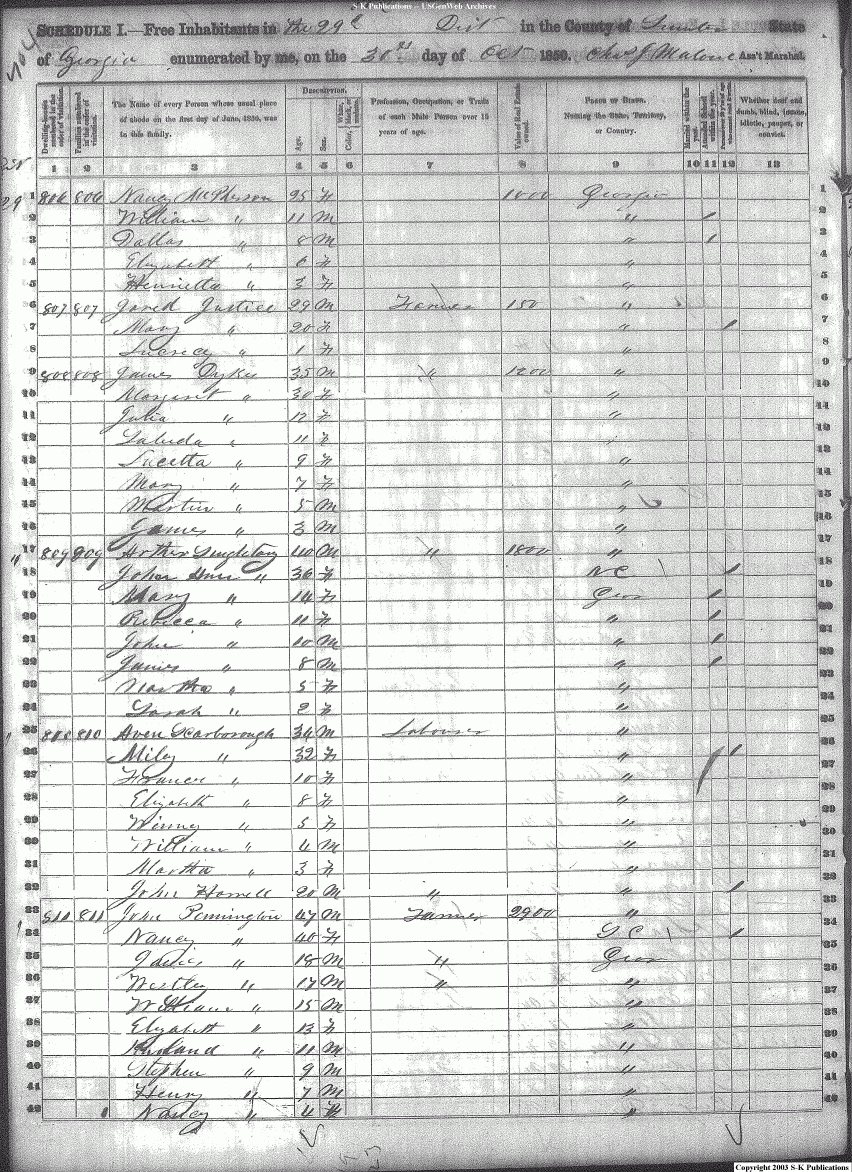 S-K Publications -- USGenWeb Archives
SCHEDULE I.—Free Inhabitants in the 29th Dist in the County of Sumter State
of Georgia enumerated by me, on the 30th day of Oct 1850. Chas J Malone Ass't Marshal.
Dwelling-houses numbered in the order of visitation.
Families numbered in the order of visitation.
The Name of every Person whose usual place of abode on the first day of June, 1850, was in this family.
Description.
Age.
Sex.
Color, White, black, or mulatto.
Profession, Occupation, or Trade of each Male Person over 15 years of age.
Value of Real Estate owned.
Place of Birth. Naming the State, Territory, or Country.
Married within the year.
Attended School within the year.
Whether deaf and dumb, blind, insane, idiotic, pauper, or convict.
1 2 3 4 5 6 7 8 9 10 11 12 13
1 806 806 Nancy McPherson 35 F 1000 Georgia 1
2 William " 11 M " / 2
3 Dallas " 8 M " / 3
4 Elizabeth " 6 F " 4
5 Henrietta " 3 F " 5
6 807 807 Jared Justice 29 M Farmer 150 " 6
7 Mary " 20 F " / 7
8 Lucrecy " 1 F " 8
9 808 808 James Dykes 35 M " 1200 " 9
10 Margaret " 30 F " 10
11 Julia " 12 F " 11
12 Saluda " 11 F " 12
13 Lucetta " 9 F " 13
14 Mary " 7 F " 14
15 Martin " 5 M " 15
16 James " 3 M " 16
17 809 809 Singletary 40 M " 1800 " 17
18 " 36 F N C / 18
19 Mary " 14 F Geor / 19
20 Rebecca " 11 F " / 20
21 John " 10 M " / 21
22 James " 8 M " / 22
23 Martha " 5 F " 23
24 Sarah " 2 F " 24
25 810 810 Aven Scarborough 34 M Labourer " 25
26 Miley " 32 F " / 26
27 Frances " 10 F " 27
28 Elizabeth " 8 F " 28
29 Winney " 5 F " 29
30 William " 4 M " 30
31 Martha " 3 F " 31
32 John Harrell 20 M " " / 32
33 811 811 John Pennington 47 M Farmer 2900 " 33
34 Nancy " 40 F S C / 34
35 " 18 M " Geor 35
36 Westley " 17 M " " 36
37 William " 15 M " 37
38 Elizabeth " 13 F " 38
39 " 11 M " 39
40 Stephen " 9 M " 40
41 Henry " 7 M " 41
42 " 4 " 42
Copyright 2003 S-K Publications